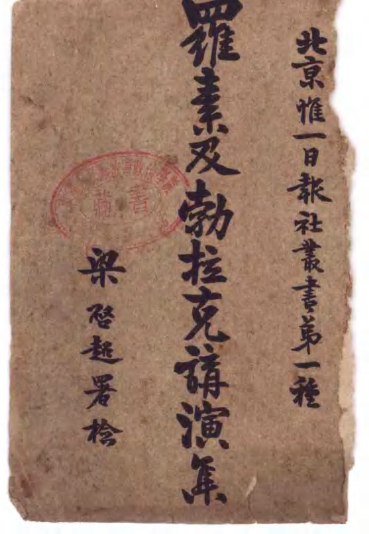 北京惟一日報社叢書第一種
羅素及勃拉克講演集
梁啓超署檢
藏書